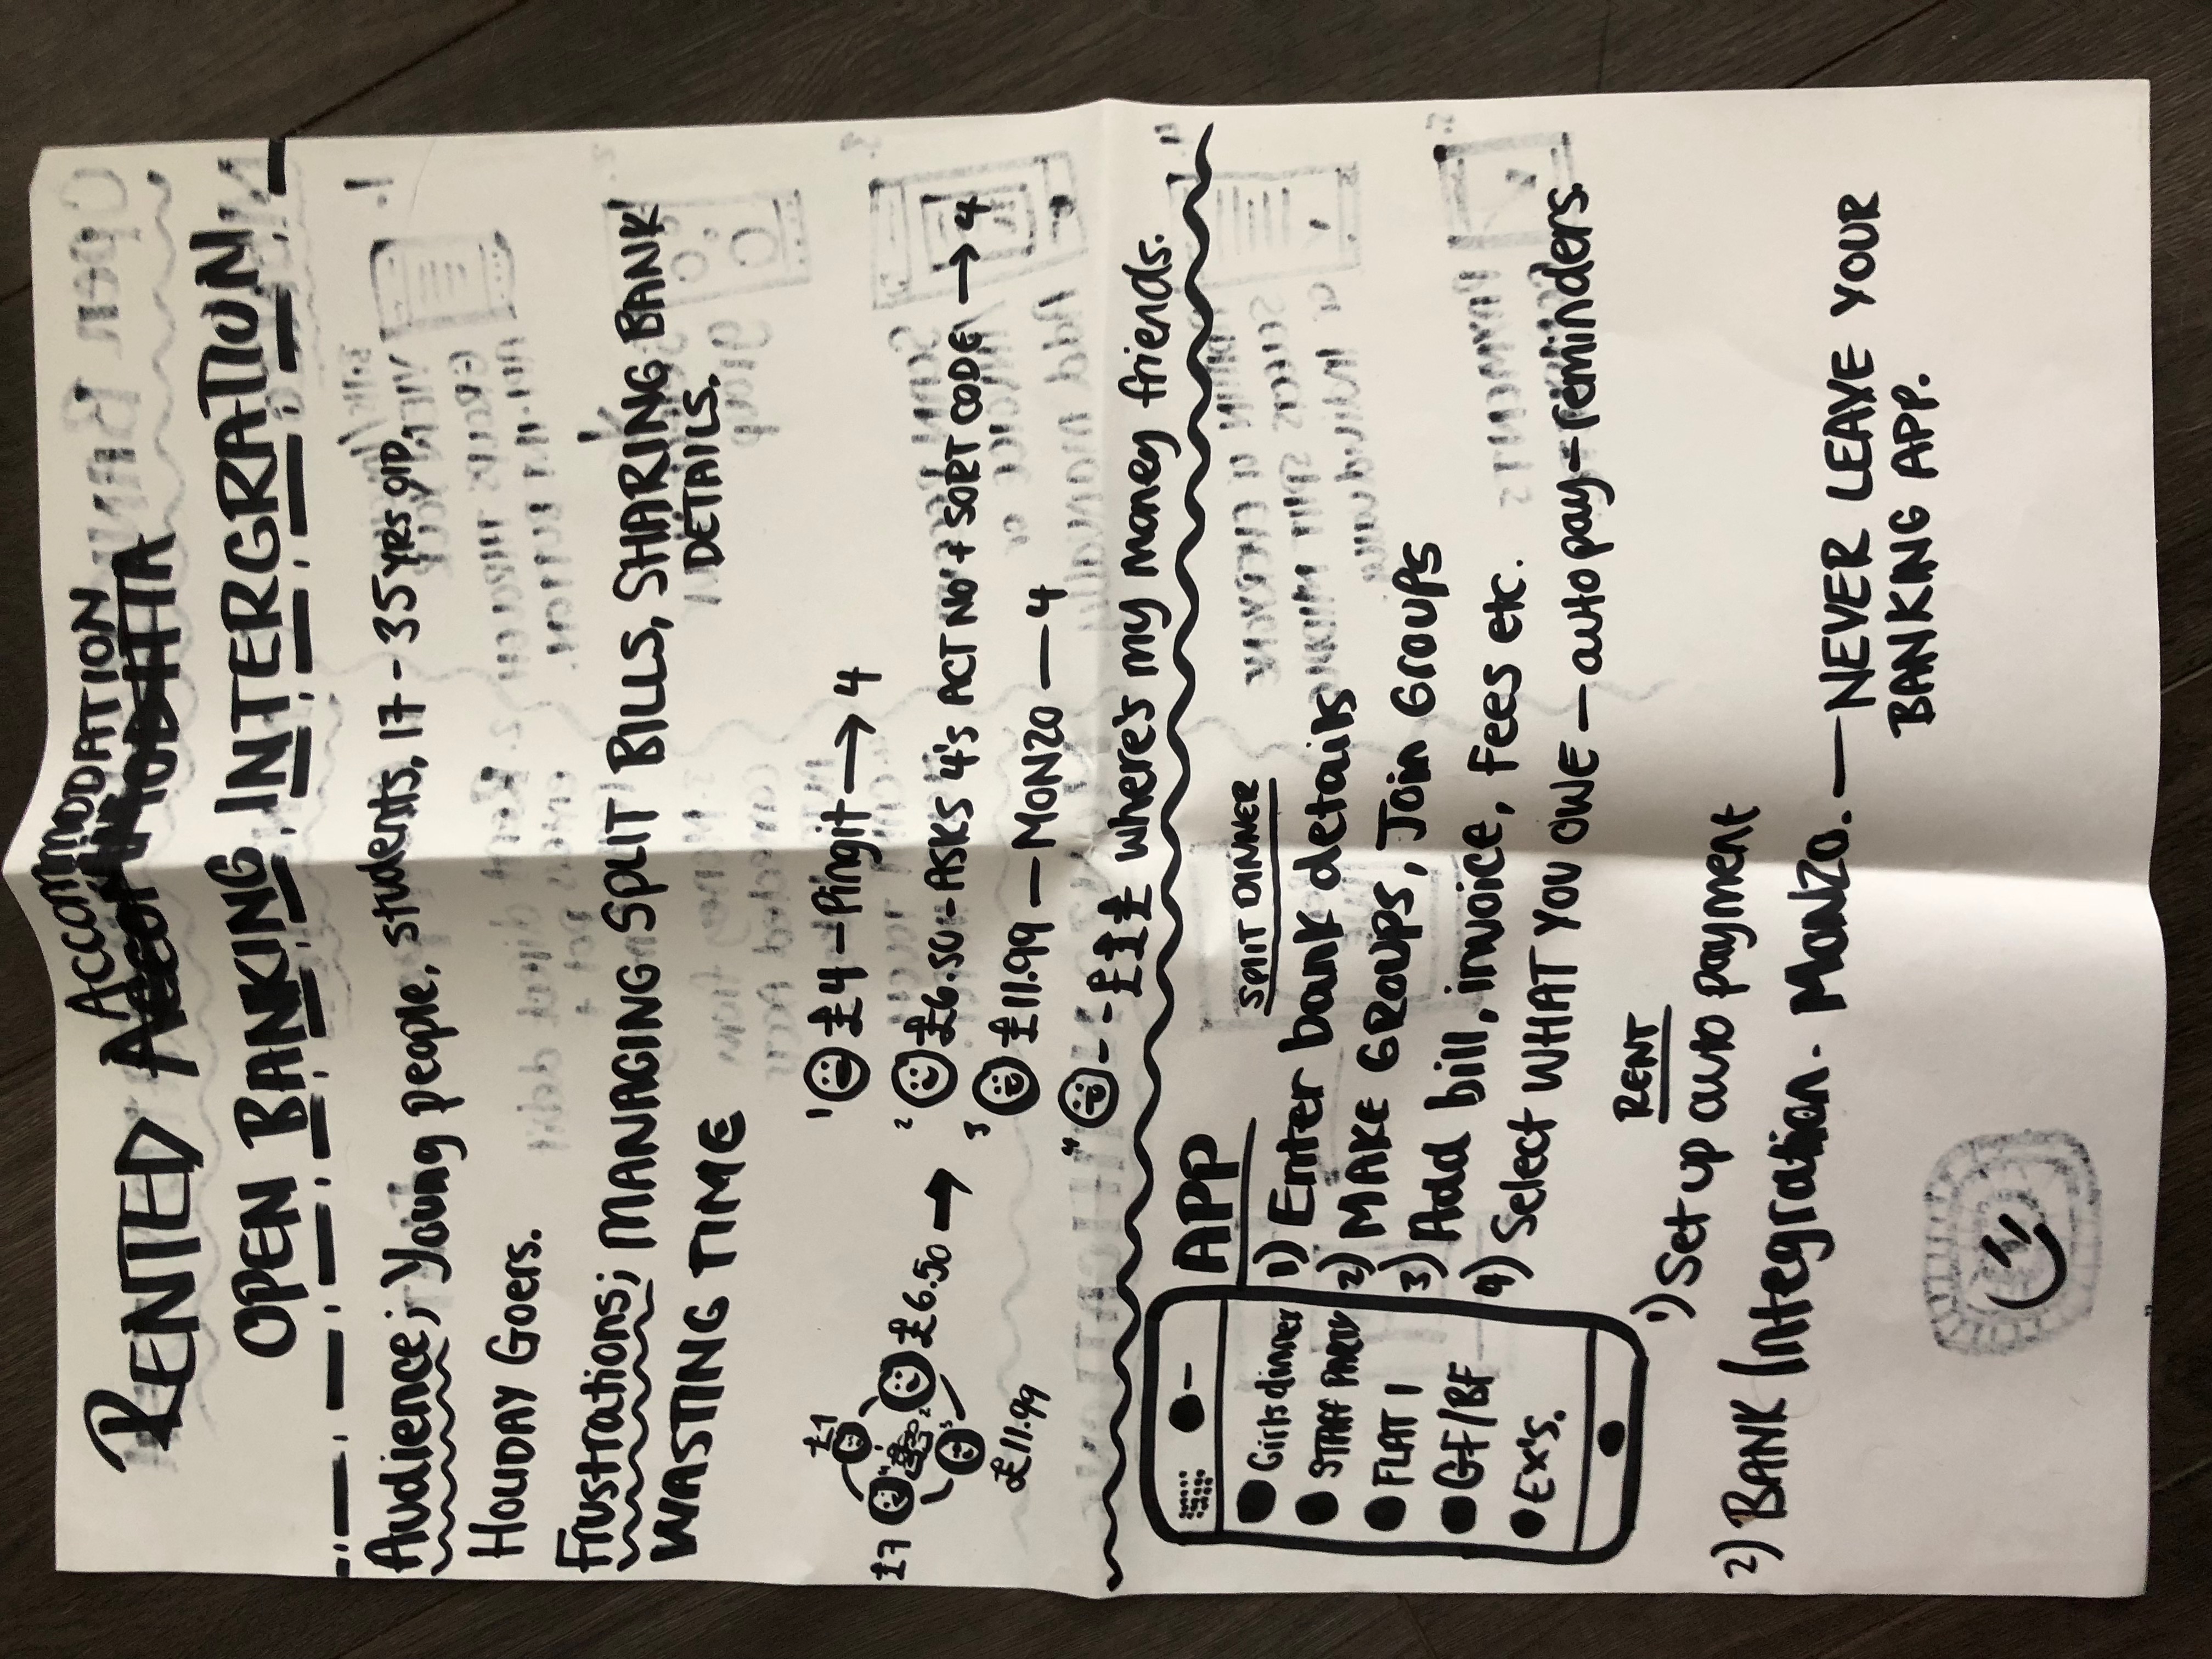 RENTED ACCOMMODATION
OPEN BANKING INTERGRATION
Audience; Young people, students, 17 - 35 YRS OID.
HOLIDAY Goers.
Frustrations; MANAGING SPLIT BILLS, SHARING BANK DETAILS.
WASTING TIME
£1
£7
£6.50
£11.99
1 £4 - Pingit → 4
2 £6.50 - ASKS 4's ACT NO + SORT CODE → 4
3 £11.99 - MONZO - 4
4 - - £££ where's my money friends.
Girls dinner
STAFF PARTY
FLAT 1
GF/BF
EX'S.
APP
SPLIT DINNER
1) Enter bank details
2) MAKE GROUPS, Join Groups
3) Add bill, invoice, fees etc.
4) Select WHAT YOU OWE - auto pay - reminders.
RENT
1) Set up auto payment
2) BANK Integration. MONZO. - NEVER LEAVE YOUR
BANKING APP.